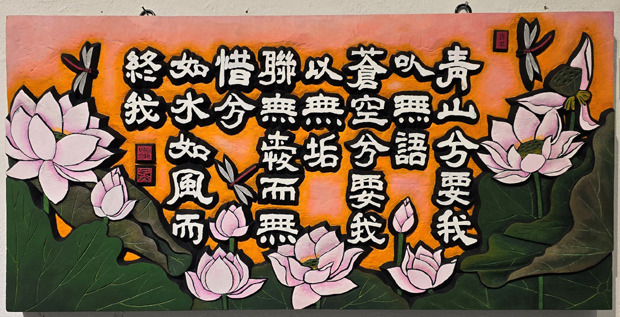 青山兮要我
㕥無語
蒼空兮要我
以無垢
聯無愛而無
惜兮
如水如風而
終我